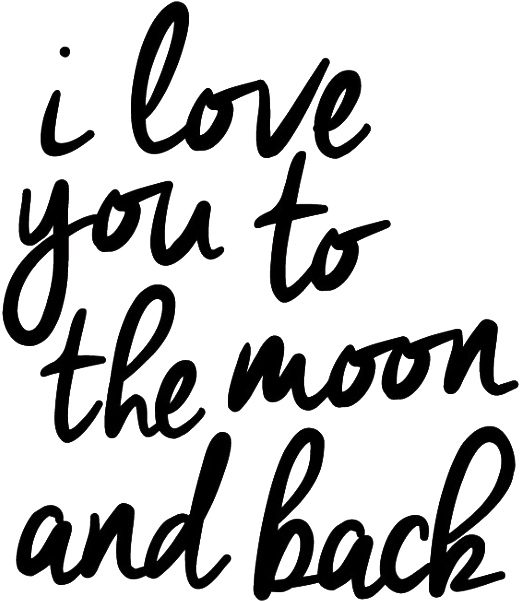 i love
you to
the moon
and back